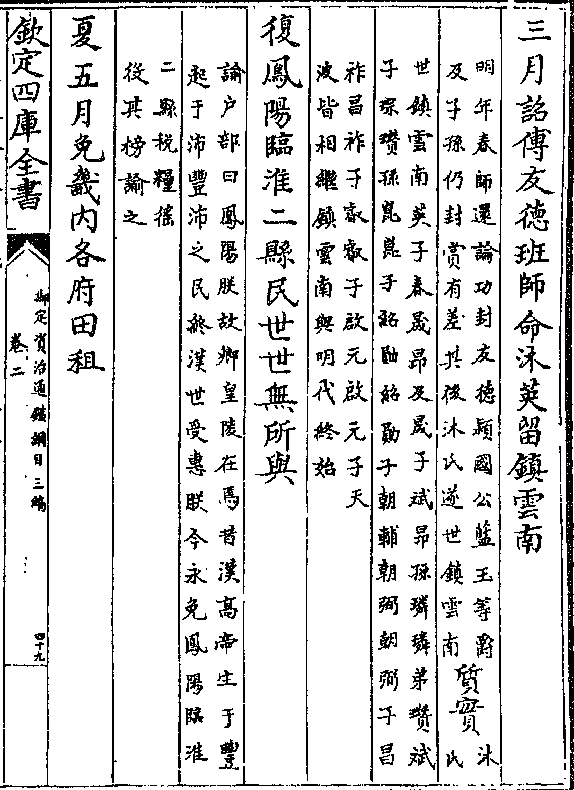 三月詔傅友德班師命沐英留鎮雲南
明年春師還論功封友德潁國公藍玉等爵
及子孫仍封賞有差其後沐氏遂世鎮雲南
質實
沐氏
世鎮雲南英子春晟昂及晟子斌昴孫璘璘弟瓚斌
子琮瓚孫崑崑子紹勛紹勛子朝輔朝弼朝弼子昌
祚昌祚子叡叡子啟元啟元子天
波皆相繼鎮雲南與明代終始
復鳳陽臨淮二縣民世世無所與
諭户部曰鳳陽朕故鄉皇陵在焉昔漢高帝生于豐
起于沛豐沛之民終漢世受惠朕今永免鳳陽臨淮
二縣税糧徭
役其榜諭之
夏五月免畿内各府田租
欽定四庫全書
御定資治通鑑綱目三編
卷二
四十九